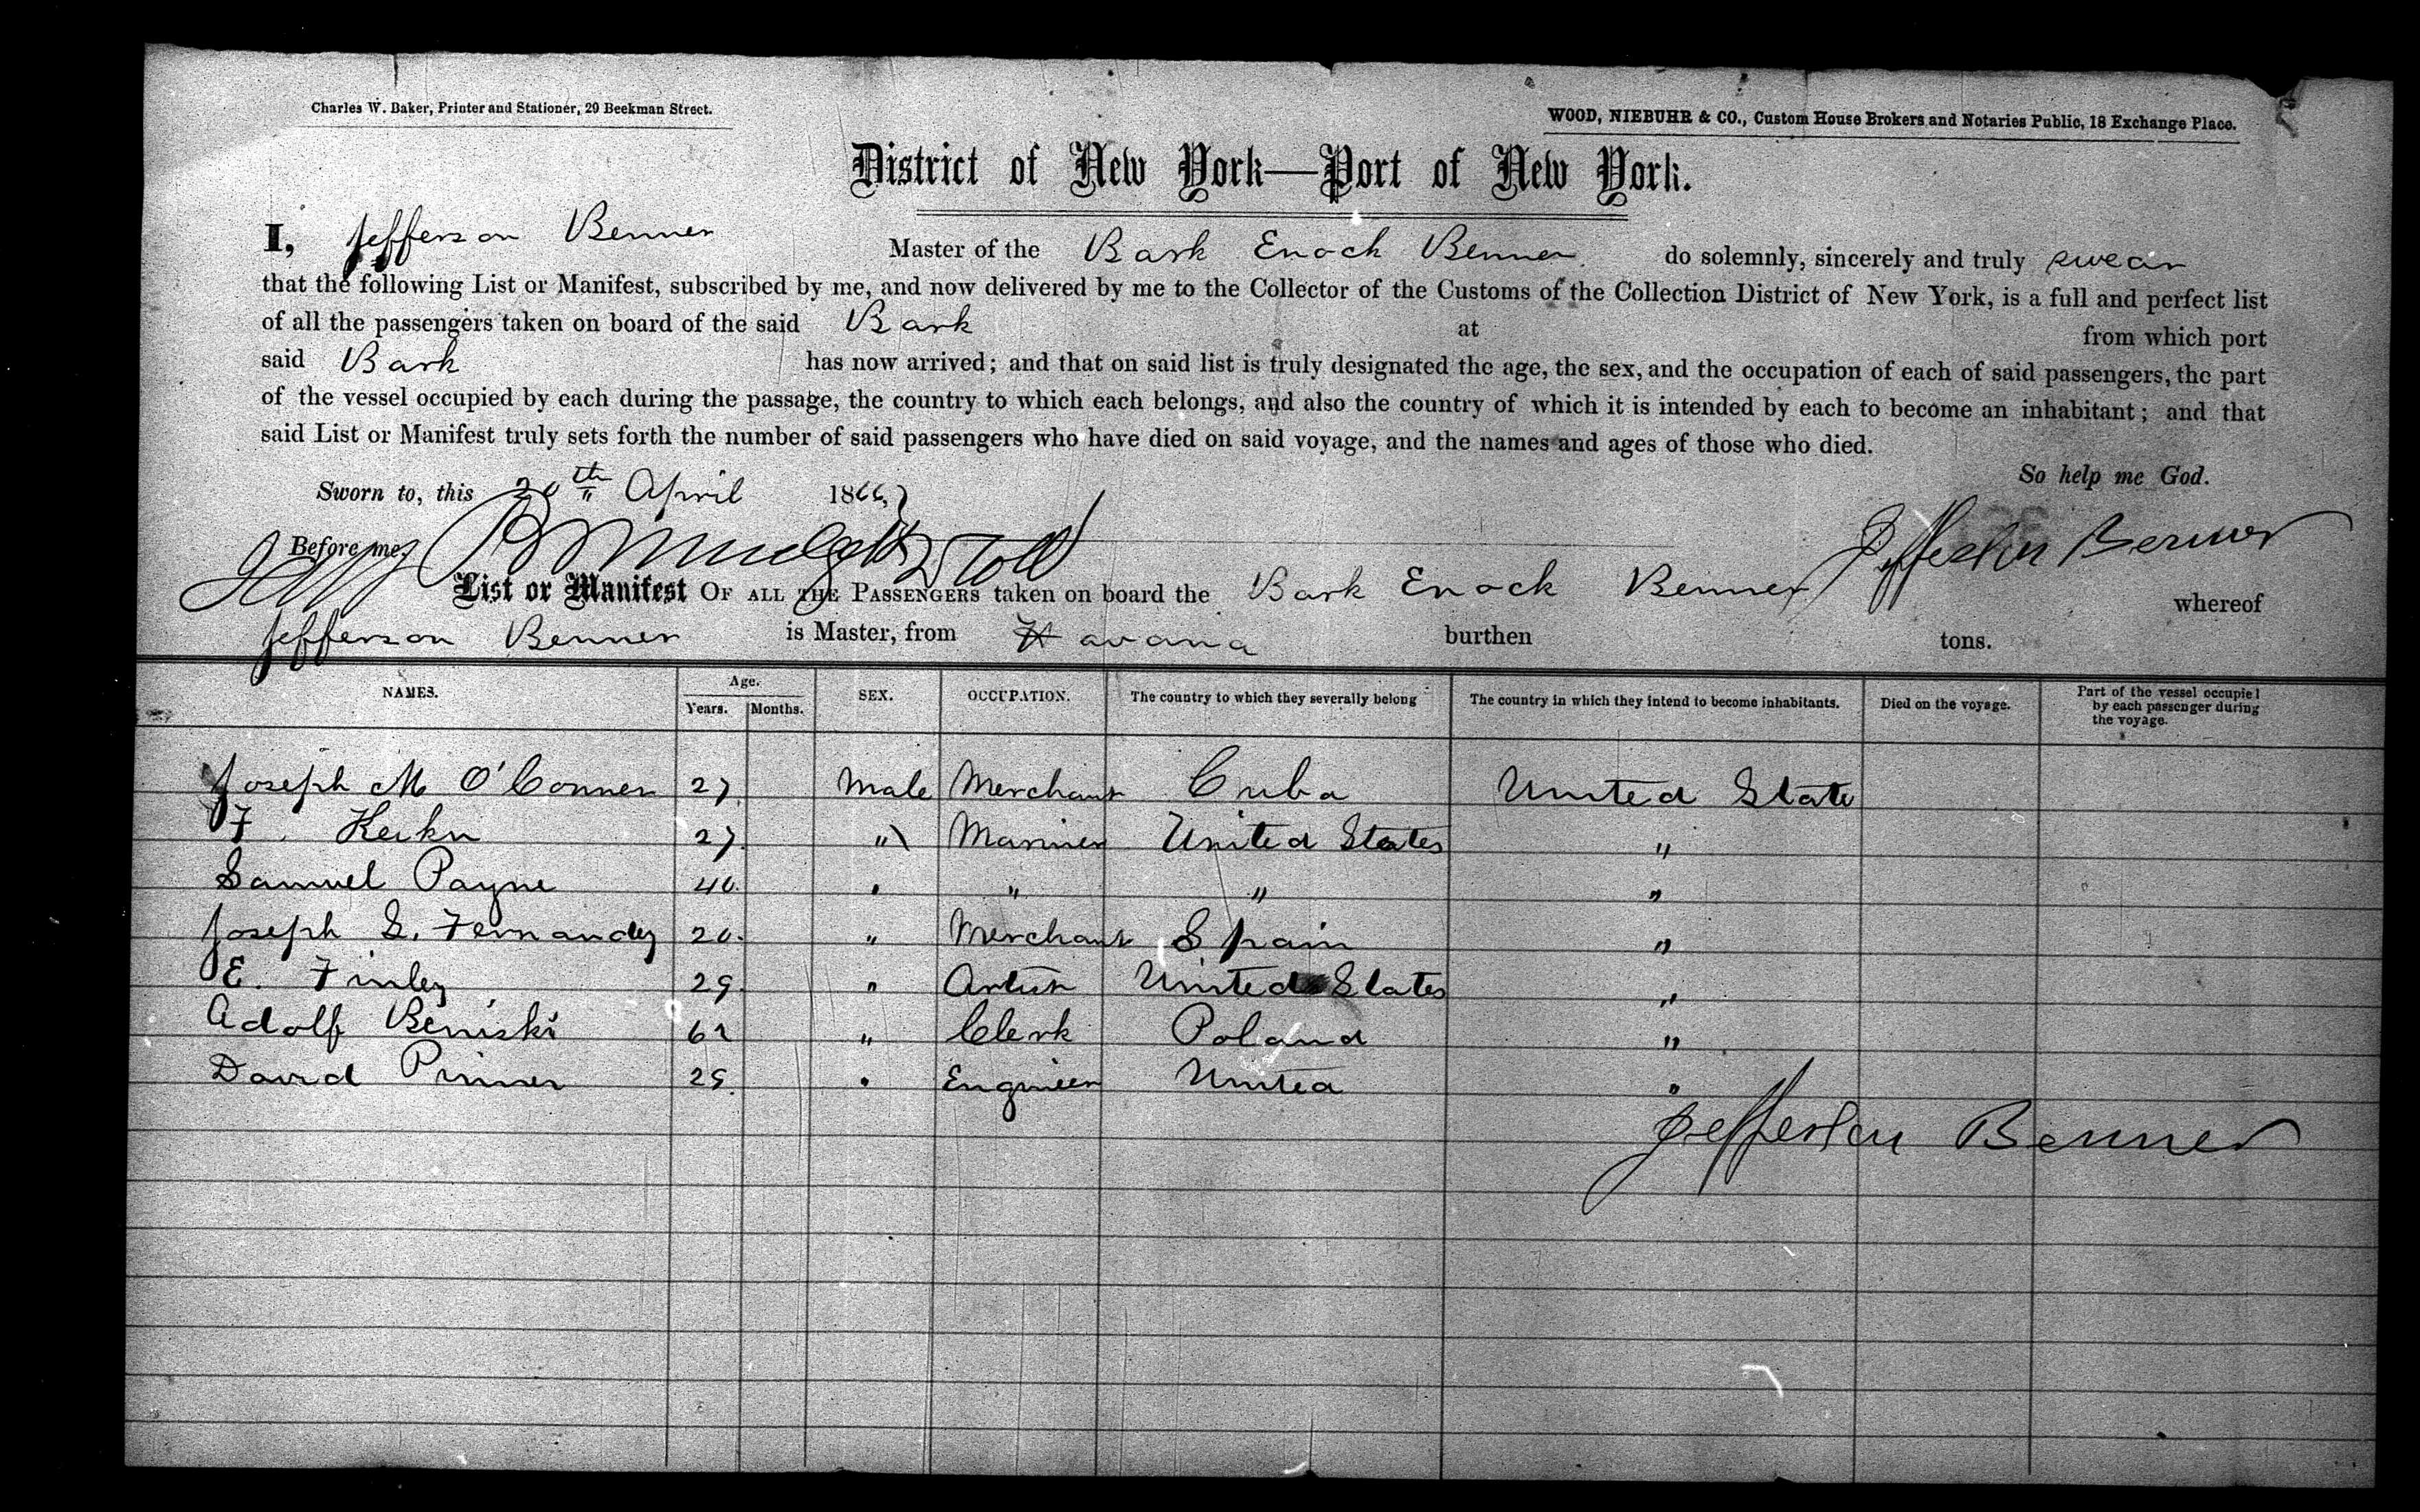 Charles W. Baker, Printer and Stationer, 29 Beekman Street.
WOOD, NIEBUHR & CO., Custom House Brokers and Notaries Public, 18 Exchange Place.
District of New York—Port of New York.
I, Jefferson Benner Master of the Bark Enoch Benner do solemnly, sincerely and truly swear
that the following List or Manifest, subscribed by me, and now delivered by me to the Collector of the Customs of the Collection District of New York, is a full and perfect list
of all the passengers taken on board of the said Bark at from which port
said Bark has now arrived; and that on said list is truly designated the age, the sex, and the occupation of each of said passengers, the part
of the vessel occupied by each during the passage, the country to which each belongs, and also the country of which it is intended by each to become an inhabitant; and that
said List or Manifest truly sets forth the number of said passengers who have died on said voyage, and the names and ages of those who died.
So help me God.
Sworn to, this 20th April 1866,
Before me,
Jefferson Benner
List or Manifest OF ALL THE PASSENGERS taken on board the Bark Enock Benner whereof
Jefferson Benner is Master, from Havana burthen tons.
NAMES. Age. Years. Months. SEX. OCCUPATION. The country to which they severally belong The country in which they intend to become inhabitants. Died on the voyage. Part of the vessel occupied by each passenger during the voyage.
Joseph M O'Conner 27 Male Merchant Cuba United State
F 27 " Mariner United States "
Samuel Payne 40 " " " "
Joseph S. Fernandez 20 " Merchant Spain "
E. Finley 29 " Artist United States "
Adolf Beniski 62 " Clerk Poland "
David Pinner 25 " Engineer United "
Jefferson Benner